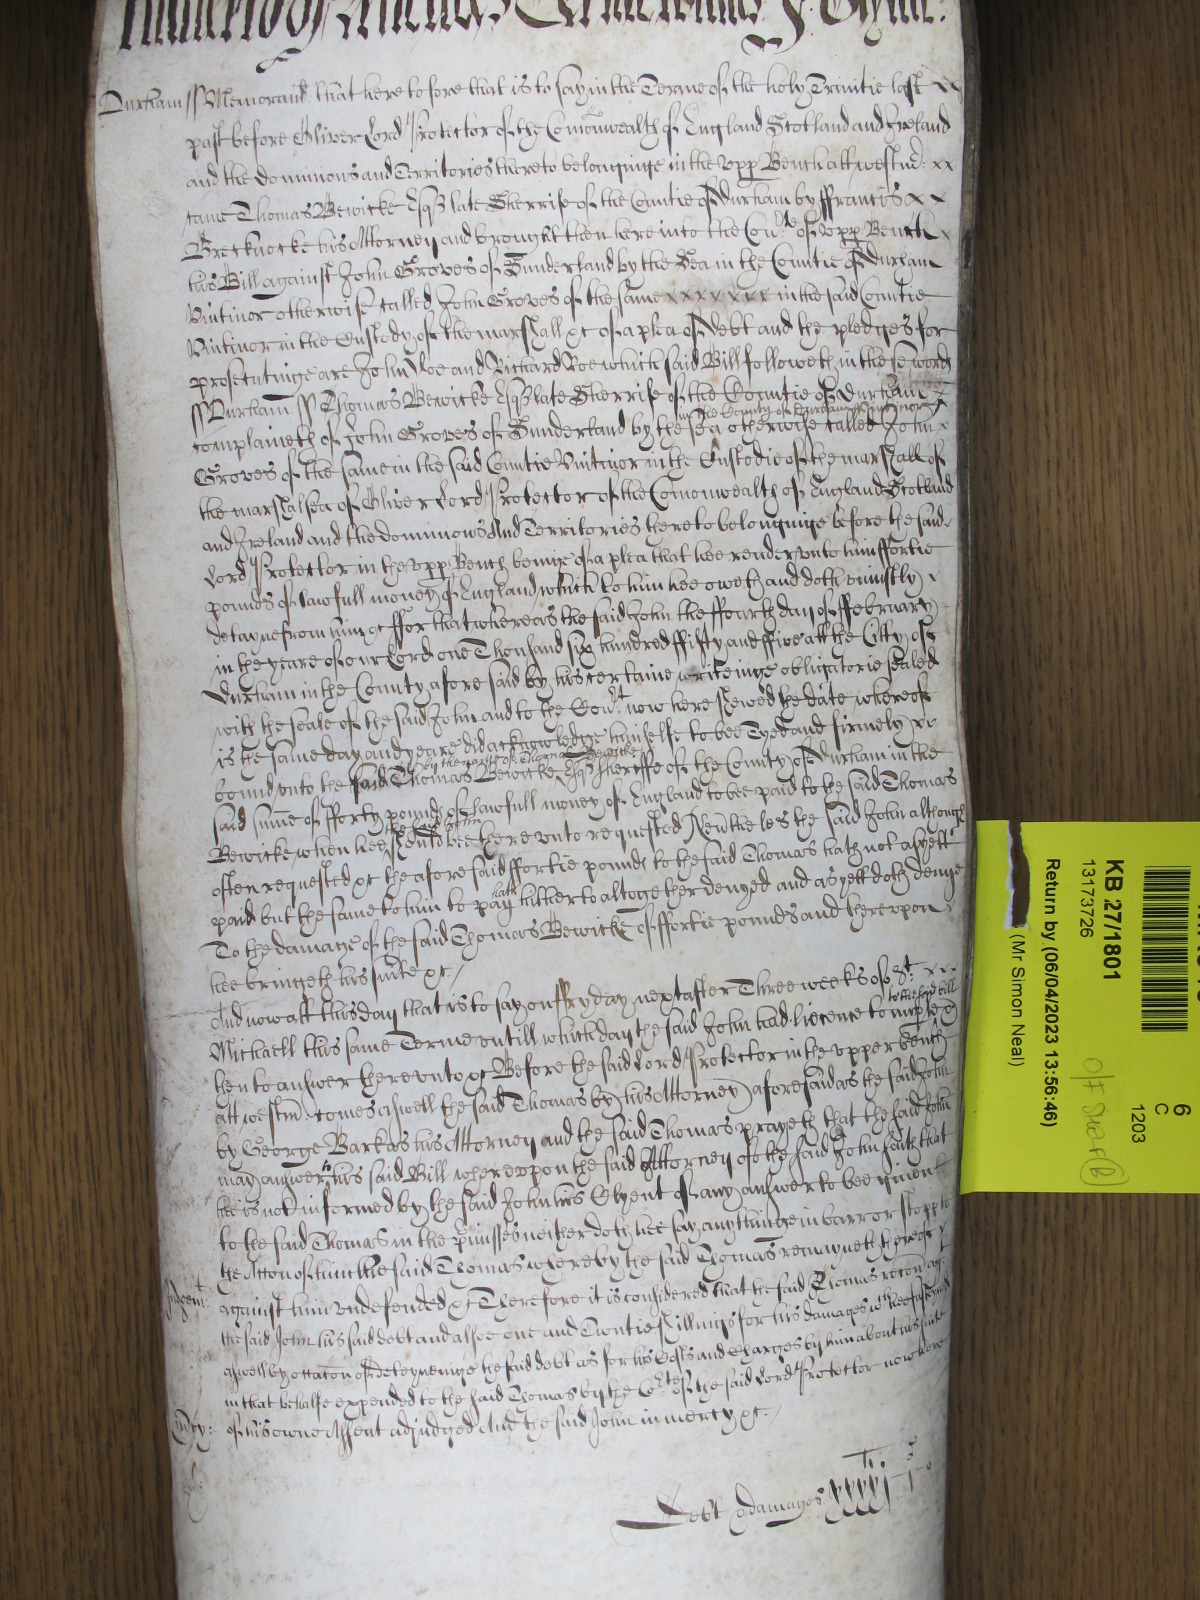 Durham ss Memorand that heretofore that is to say in the Terme of the holy Trinitie last xx
past before Oliver Lord Protector of the Comonwealth of England Scotland and Ireland
and the dominions and Territories thereto belonginge in the upp Bench att westm: xx
came Thomas Bewicke Esq late Sherrife of the Countie of Durham by ffrancis x x
Brecknocke his Attorney and brought then here into the Cou:te of upp Bench x
his Bill against John Groves of Sunderland by the Sea in the Countie of Durham
Vintinor otherwise called John Groves of the same xxxxxxx in the said Countie
Vintinor in the Custody of the marshall &c of a plea of debt and the pledges for
prosecutinge are John Doe and Richard Roe which said Bill followeth in these words
ss Durham ss Thomas Bewicke Esq late Sherrife of the Countie of Durham
complaineth of John Groves of Sunderland by the Sea in the County of Durham vintinor otherwise called John x
Groves of the same in the said Countie Vintinor in the Custodie of the marshall of
the marshalsea of Oliver Lord Protector of the Comonwealth of England Scotland
and Ireland and the dominions And Territories thereto belonginge before the said
Lord Protector in the upp Bench beinge of a plea that hee render unto him ffortie
pounds of lawfull money of England which to him hee oweth and doth uniustly x
detayne from him &c ffor that whereas the said John the ffourth day of ffebruary
in the yeare of our Lord one Thousand six hundred ffifty and ffive att the Citty of
Durham in the County aforesaid by his certaine writeinge obligatorie sealed
with the seale of the said John and to the Cou:rt now here shewed the date whereof
is the same day and yeare did acknowledge himselfe to bee Tyed and firmely xx
bound unto the said Thomas by the name of Thomas Bewicke Bewicke Esq sheriffe of the County of Durham in the
said sume of fforty pounds of lawfull money of England to bee paid to the said Thomas
Bewicke when hee the said John should bee thereunto requested Neutheles the said John although
often requested &c the aforesaid ffortie pounds to the said Thomas hath not as yett
paid but the same to him to pay hath hitherto altogether denyed and as yett doth denye
To the damage of the said Thomas Bewicke of ffortie pounds and thereupon
hee bringeth his suite &c /
And now att this day that is to say on ffryday next after Three weeks of St: xxx
Michaell this same Terme untill which day the said John had licence to imple to the said bill
then to answer thereunto &c Before the said Lord Protector in the upper bench
att westm comes aswell the said Thomas by his Attorney aforesaid as the said John
by George Barkas his Attorney and the said Thomas prayeth that the said John
may answer to his said Bill whereupon the said Attorney of the said John saith that
he is not informed by the said John his Clyent of any answer to bee given
to the said Thomas in the pmisses neither doth hee say anythinge in barr or stopp to
the Action of him the said Thomas whereby the said Thomas remayneth thereof
Judgem:t against him undefended &c Therefore it is considered that the said Thomas recov ag:
the said John his said debt and alsoe one and Twentie shillings for his damages wch hee susteyned
aswell by occation of deteyneinge the said debt as for his Costs and Charges by him about his suite
in that behalfe expended to the said Thomas by the Co:rte of the said Lord Protector now here
mcy: of his owne Assent adjudged And the said John in mercy &c.
Debt & damages xxxxj li: j s 0
KB 27/1801
13173726
Return by (06/04/2023 13:56:46)
(Mr Simon Neal)
6
C
1203